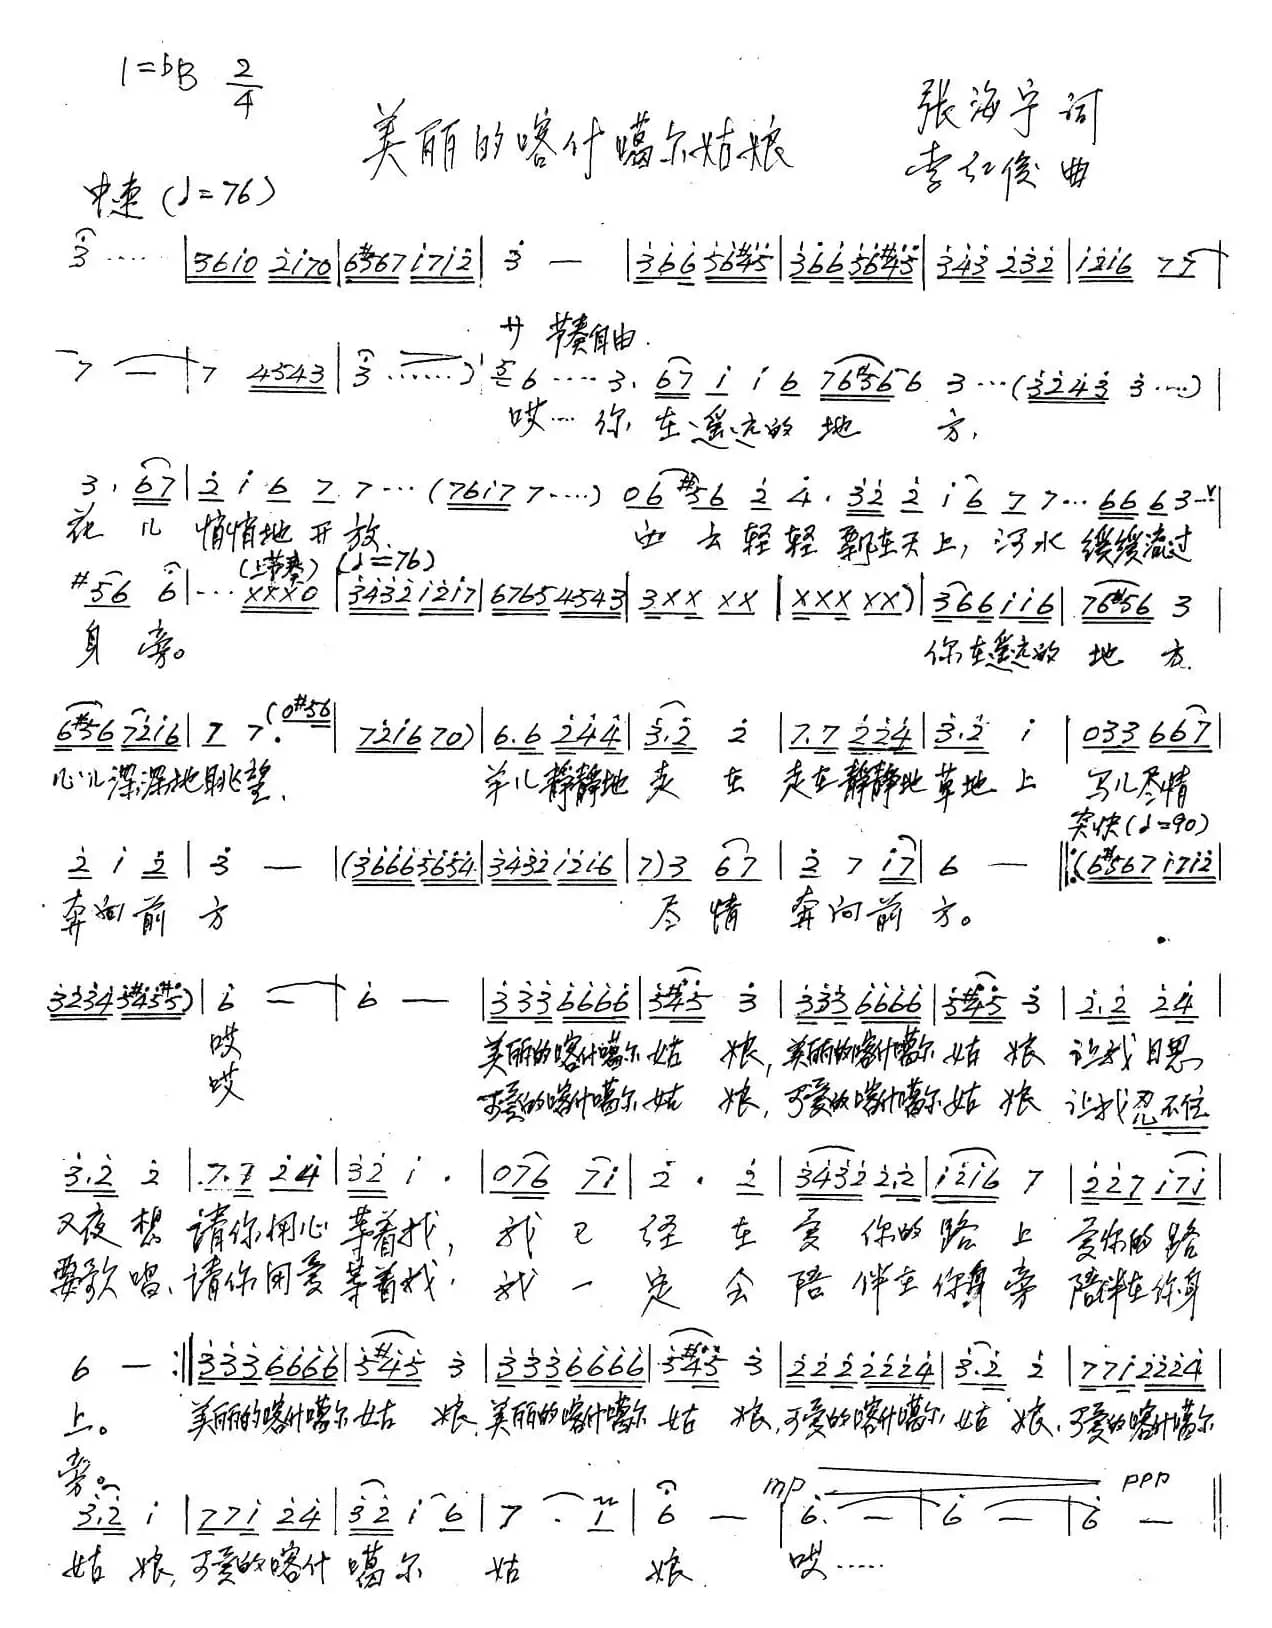 1=bB 2/4
美丽的喀什噶尔姑娘
张海宁 词
李红俊 曲
中速 (♩=76)
3̇ ····· | 3610 2170 | 6#567 1712 | 3 — | 366 56#45 | 366 56#45 | 343 232 | 1216 77 |
7 — | 7 4543 | 3 ······) サ 节奏自由. 6 ···· 3. 67 1 1 6 76#566 3 ···(3243 3 ····) |
哎··· 你 在遥远的 地 方,
3. 67 | 2 1 6 7 7 ··· (7617 7 ····) 06 #56 2 4. 32 2 1 6 7 7 ··· 66 63 |
花 儿 悄悄地开放. 白云轻轻飘在天上, 河水缓缓流过
(上节奏) (♩=76)
#56 6 | ··· xxx0 | 3432 1217 | 6765 4543 | 3xx xx | xxx xx) | 366 116 | 76#56 3 |
身 旁。 你在遥远的 地 方.
6#56 7216 | 7 7. (0#56 | 7216 70) | 6.6 244 | 3.2 2 | 7.7 224 | 3.2 1 | 033 667 |
心儿深深地眺望. 羊儿静静地 走 在 走在静静地草地上 马儿尽情
突快(♩=90)
2 1 2 | 3 — | (3666 5654 | 3432 1216 | 7) 3 67 | 2 7 17 | 6 — ‖: (6#567 1712 |
奔向前 方 尽 情 奔向前方。
3234 5#45#5) | 6 — | 6 — | 333 6666 | 5#45 3 | 333 6666 | 5#45 3 | 2.2 24 |
哎 美丽的喀什噶尔姑 娘, 美丽的喀什噶尔姑 娘 让我日思
哎 可爱的喀什噶尔姑 娘, 可爱的喀什噶尔姑 娘 让我忍不住
3.2 2 | 7.7 24 | 32 1. | 076 71 | 2. 2 | 3432 2.2 | 1216 7 | 227 171 |
又夜想 请你用心等着我, 我已经在爱你的路上 爱你的路
要歌唱、请你用爱等着我. 我一定会陪伴在你身旁 陪伴在你身
6 — :‖ 333 6666 | 5#45 3 | 333 6666 | 5#45 3 | 222 2224 | 3.2 2 | 771 2224 |
上。 美丽的喀什噶尔姑 娘. 美丽的喀什噶尔姑 娘, 可爱的喀什噶尔姑 娘. 可爱的喀什噶尔
旁。
mp ppp
3.2 1 | 771 24 | 32 1 6 | 7 . 1 | 6 — | 6. — | 6 — | 6 — ‖
姑 娘, 可爱的喀什噶尔 姑 娘. 哎······